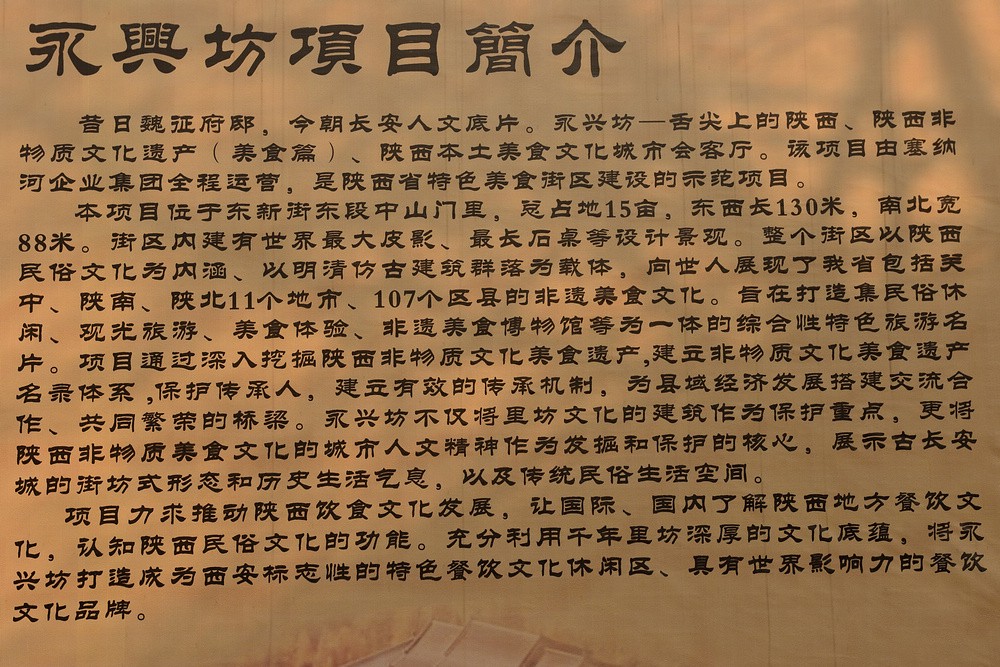 永興坊項目簡介
昔日魏征府邸，今朝长安人文底片。永兴坊—舌尖上的陕西、陕西非
物质文化遗产（美食篇）、陕西本土美食文化城市会客厅。该项目由塞纳
河企业集团全程运营，是陕西省特色美食街区建设的示范项目。
本项目位于东新街东段中山门里，总占地15亩，东西长130米，南北宽
88米。街区内建有世界最大皮影、最长石桌等设计景观。整个街区以陕西
民俗文化为内涵、以明清仿古建筑群落为载体，向世人展现了我省包括关
中、陕南、陕北11个地市、107个区县的非遗美食文化。旨在打造集民俗休
闲、观光旅游、美食体验、非遗美食博物馆等为一体的综合性特色旅游名
片。项目通过深入挖掘陕西非物质文化美食遗产,建立非物质文化美食遗产
名录体系,保护传承人，建立有效的传承机制，为县域经济发展搭建交流合
作、共同繁荣的桥梁。永兴坊不仅将里坊文化的建筑作为保护重点，更将
陕西非物质美食文化的城市人文精神作为发掘和保护的核心，展示古长安
城的街坊式形态和历史生活气息，以及传统民俗生活空间。
项目力求推动陕西饮食文化发展，让国际、国内了解陕西地方餐饮文
化，认知陕西民俗文化的功能。充分利用千年里坊深厚的文化底蕴，将永
兴坊打造成为西安标志性的特色餐饮文化休闲区、具有世界影响力的餐饮
文化品牌。